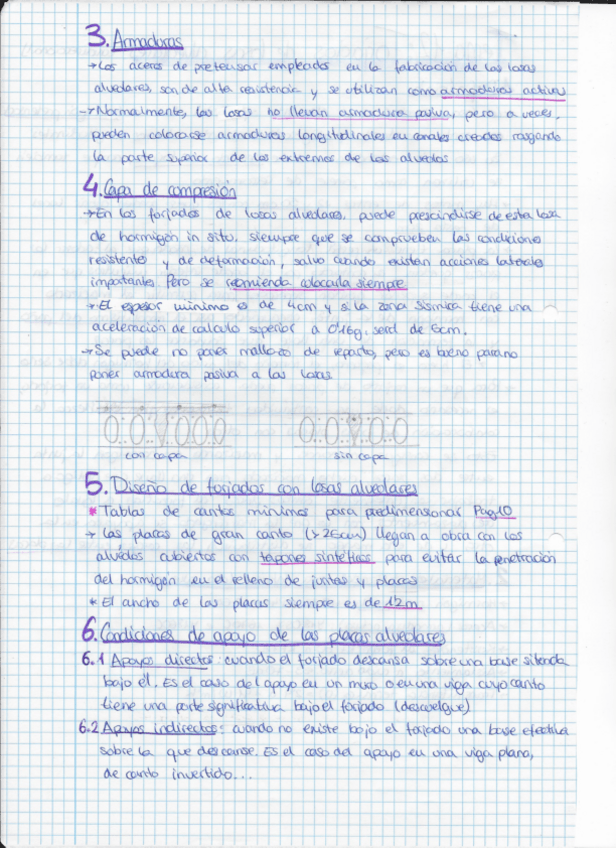 3. Armaduras
→ Los aceros de pretensar empleados en la fabricación de las losas
alveolares, son de alta resistencia y se utilizan como armaduras activas
→ Normalmente, las losas no llevan armadura pasiva, pero a veces,
pueden colocarse armaduras longitudinales en canales creados rasgando
la parte superior de los extremos de los alveolos
4. Capa de compresión
→ En los forjados de losas alveolares, puede prescindirse de esta losa
de hormigón in situ, siempre que se comprueben las condiciones
resistentes y de deformación, salvo cuando existan acciones laterales
importantes. Pero se recomienda colocarla siempre
→ El espesor mínimo es de 4cm y si la zona sísmica tiene una
aceleración de calculo superior a 0'16g, será de 5cm.
→ Se puede no poner mallazo de reparto, pero es bueno para no
poner armadura pasiva a las losas.
con capa sin capa
5. Diseño de forjados con losas alveolares
* Tablas de cantos mínimos para predimensionar Pag10
→ Las placas de gran canto (>26cm) llegan a obra con los
alveolos cubiertos con tapones sintéticos para evitar la penetración
del hormigón en el relleno de juntas y placas
* El ancho de las placas siempre es de 1'2m
6. Condiciones de apoyo de las placas alveolares
6.1 Apoyos directos: cuando el forjado descansa sobre una base situada
bajo él. Es el caso del apoyo en un muro o en una viga cuyo canto
tiene una parte significativa bajo el forjado (descuelgue)
6.2 Apoyos indirectos: cuando no existe bajo el forjado una base efectiva
sobre la que descanse. Es el caso del apoyo en una viga plana,
de canto invertido...